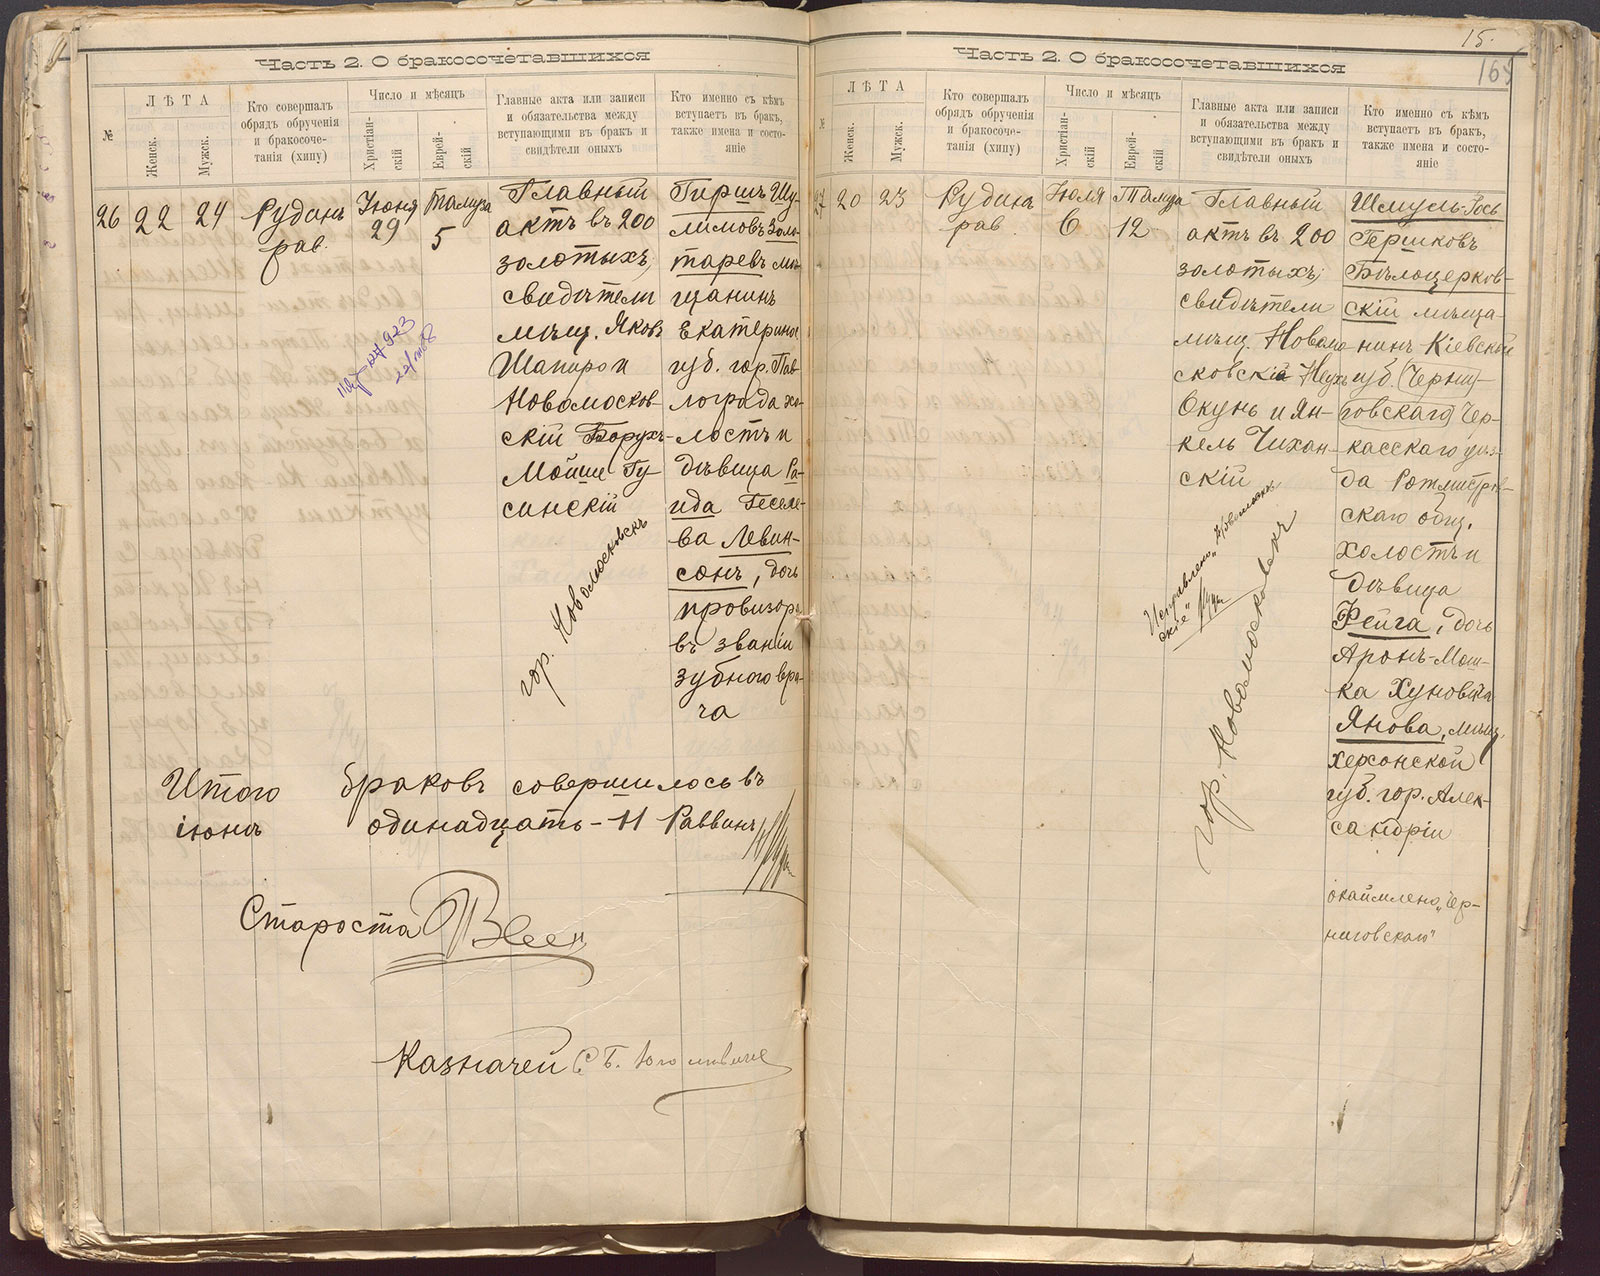 Часть 2. О бракосочетавшихся
№
ЛѢТА
Женск.
Мужск.
Кто совершалъ
обрядъ обрученія
и бракосоче-
танія (хипу)
Число и мѣсяцъ
Христіан-
скій
Еврей-
скій
Главные акта или записи
и обязательства между
вступающими въ бракъ и
свидѣтели оныхъ
Кто именно съ кѣмъ
вступаетъ въ бракъ,
также имена и состо-
яніе
26
22
24
Рудинъ
рав.
Іюня
29
Тамуза
5
Главный
актъ въ 200
золотыхъ,
свидѣтели
мѣщ. Яковъ
Шапиро и
Новомосков-
скій Борухъ-
Мойше Гу
синскій
гор. Новомосковскъ
Гиршъ Шу-
лимовъ Золо-
таревъ мѣ-
щанинъ
Екатеринос
губ. гор. Пав
лограда хо-
лостъ и
дѣвица Ра-
ида Геселе-
ва Левин-
сонъ, дочь
провизора
въ званіи
зубного вра-
ча
Итого браковъ совершилось въ
іюнѣ одинадцать - 11 Раввинъ
Староста
Казначей
15.
Часть 2. О бракосочетавшихся
№
ЛѢТА
Женск.
Мужск.
Кто совершалъ
обрядъ обрученія
и бракосоче-
танія (хипу)
Число и мѣсяцъ
Христіан-
скій
Еврей-
скій
Главные акта или записи
и обязательства между
вступающими въ бракъ и
свидѣтели оныхъ
Кто именно съ кѣмъ
вступаетъ въ бракъ,
также имена и состо-
яніе
27
20
23
Рудинъ
рав.
Іюля
6
Тамуза
12
Главный
актъ въ 200
золотыхъ;
свидѣтели
мѣщ. Новомо
сковскіе
Окунь и Ян-
кель Чихан-
скій
Исправлено „Новомосков
скіе"
гор. Новомосковскъ
Шмуль-Іось
Гершковъ
Бѣлоцерков-
скій мѣща-
нинъ Кіевской
губ. (Черни-
говскаго) Чер-
касскаго уѣз-
да Ротмистров-
скаго общ.
холостъ и
дѣвица
Фейга, дочь
Аронъ-Мош-
ка Хуновича
Янова, мѣщ.
Херсонской
губ. гор. Алек-
сандріи
окаймлено „Чер-
ниговскаго"